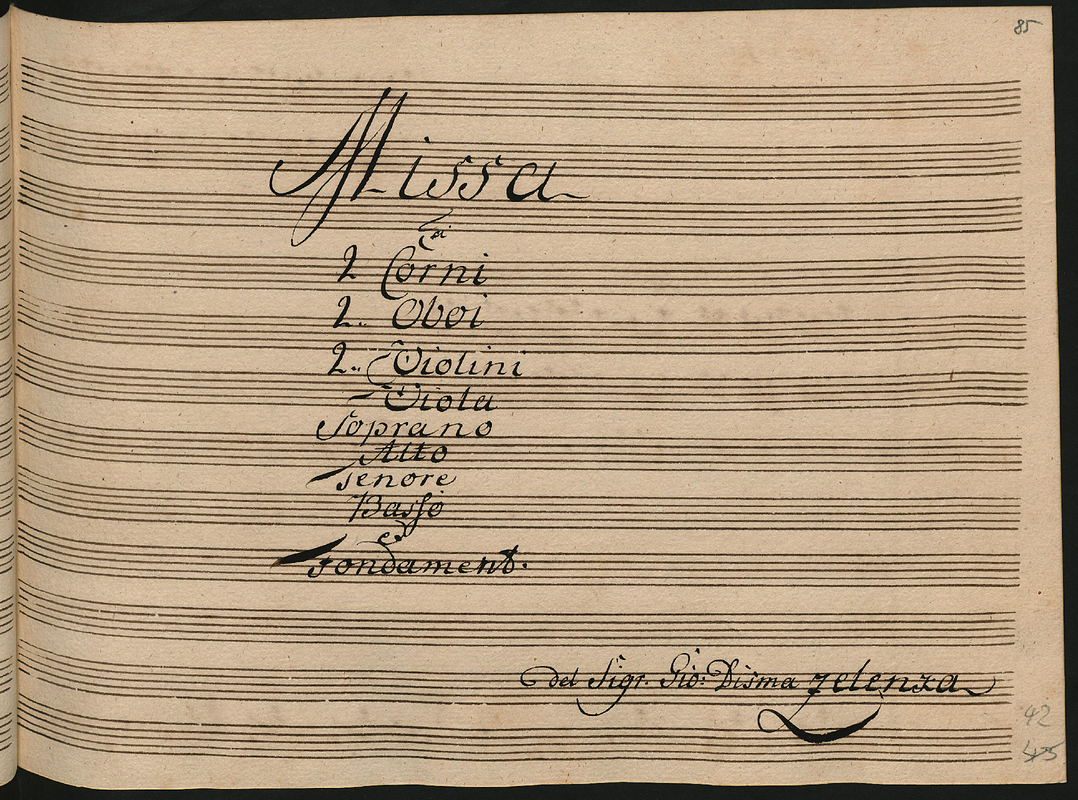 85
Missa
a
2 Corni
2.. Oboi
2.. Violini
Viola
Soprano
Alto
Tenore
Basso
ed
Fondament.
del Sigr. Gio: Disma Zelenka
42
45